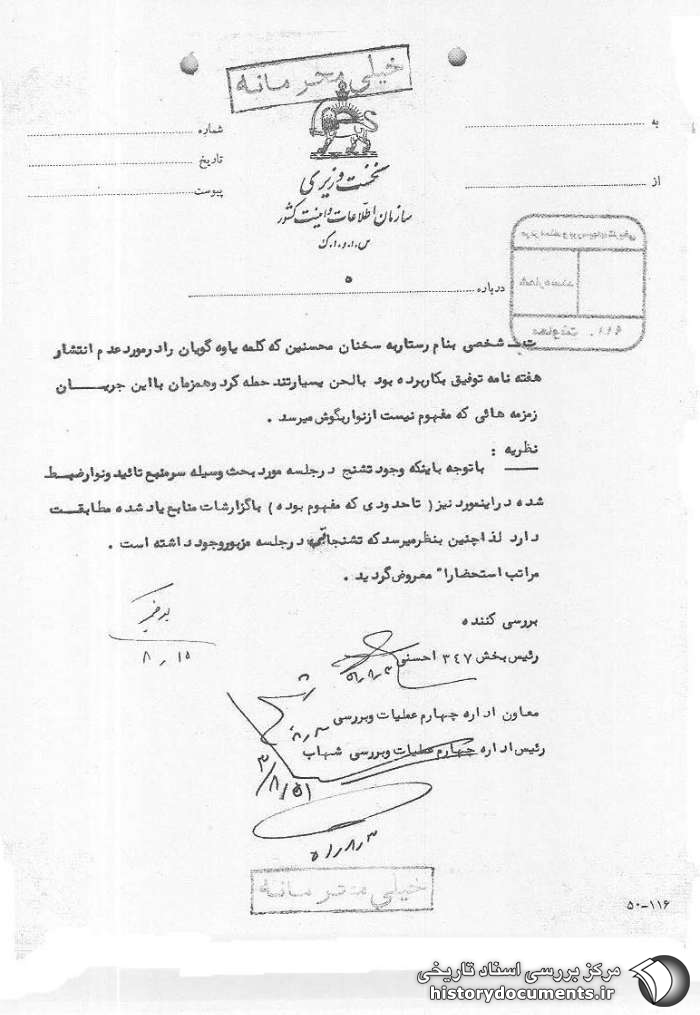 خیلی محرمانه
به
شماره
از
تاریخ
پیوست
نخست وزیری
سازمان اطلاعات و امنیت کشور
س.ا.و.ا.ک
درباره
ت‌ـ شخصی بنام رستار به سخنان محسنین که کلمه یاوه گویان را در مورد عدم انتشار
هفته نامه توفیق بکار برده بود با لحن بسیار تند حمله کرد و همزمان با این جریان
زمزمه هائی که مفهوم نیست از نوار بگوش میرسد .
نظریه :
با توجه باینکه وجود تشنج در جلسه مورد بحث وسیله سر منبع تائید و نوار ضبط
شده در اینمورد نیز ( تا حدودی که مفهوم بوده ) با گزارشات منابع یاد شده مطابقت
دارد لذا چنین بنظر میرسد که تشنجاتی در جلسه مزبور وجود داشته است .
مراتب استحضاراً معروض گردید .
بررسی کننده
۸٫۱۵
رئیس بخش ۳۴۷ احسنی
۵۱٫۸٫۳
معاون اداره چهارم عملیات و بررسی
رئیس اداره چهارم عملیات و بررسی شهاب
۳/۸/۵۱
۵۱٫۸٫۳
خیلی محرمانه
۵۰-۱۱۶
مرکز بررسی اسناد تاریخی
historydocuments.ir